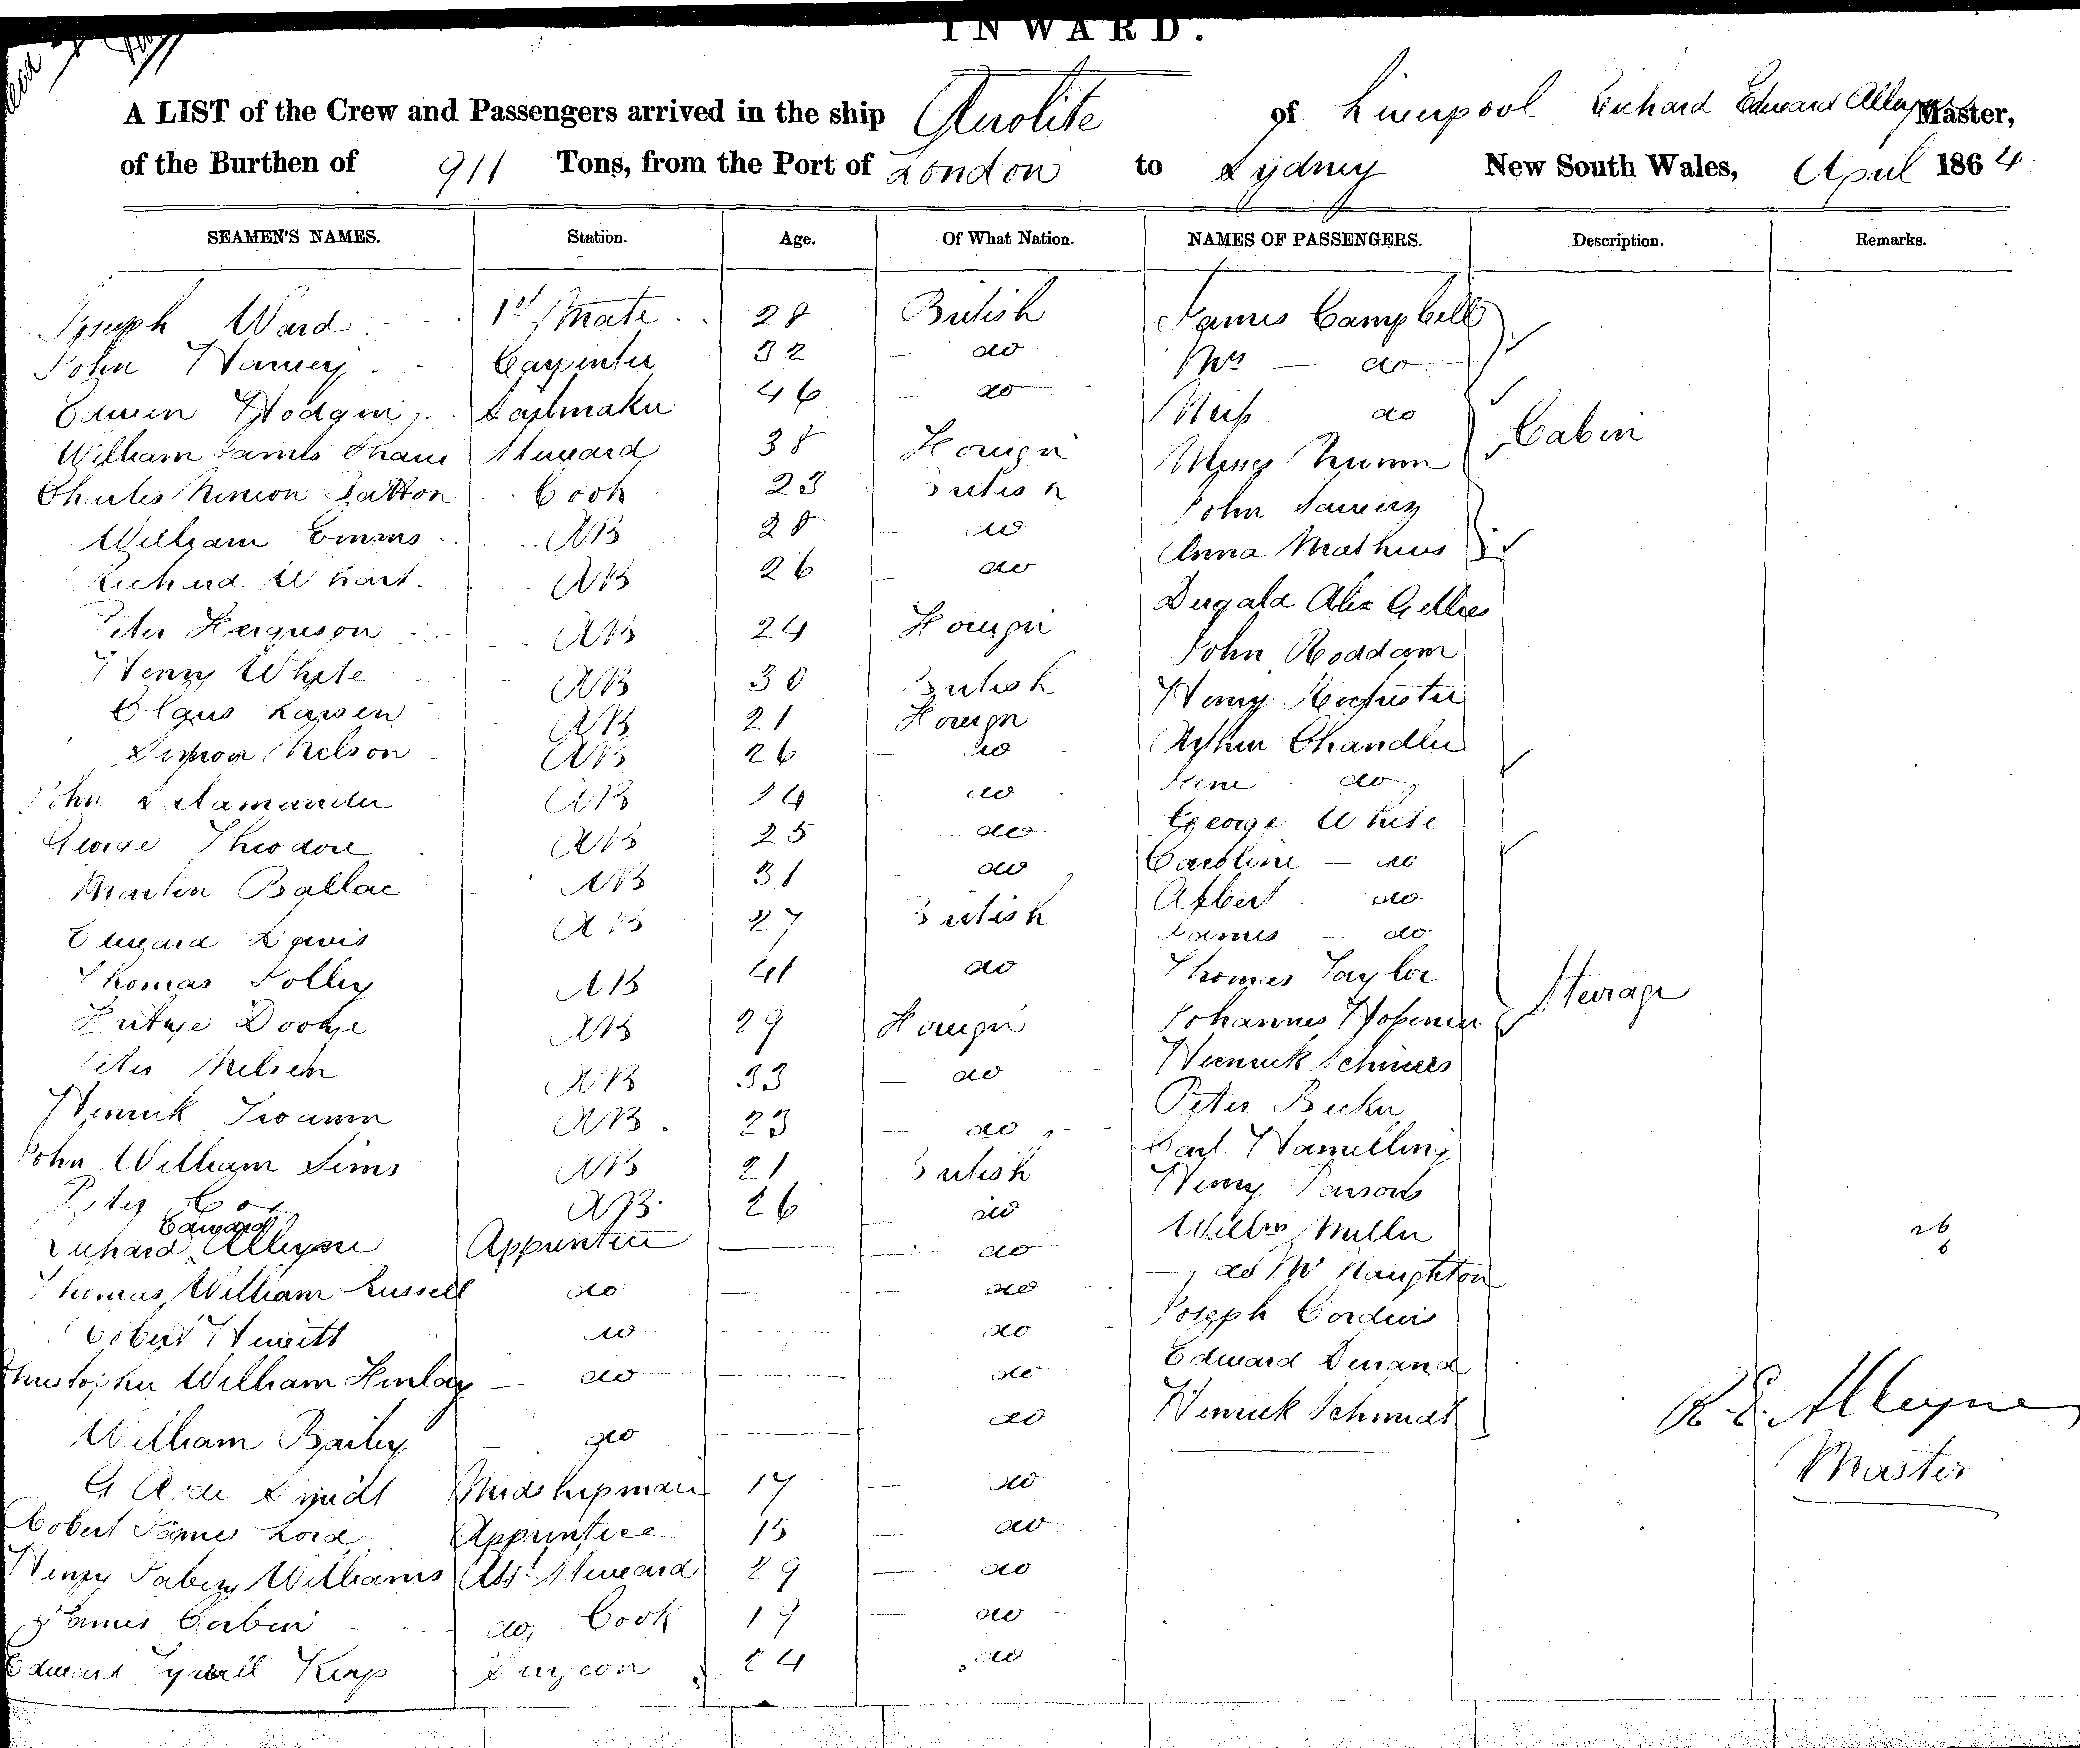 INWARD.
A LIST of the Crew and Passengers arrived in the ship Aerolite of Liverpool Richard Edward Alleyne Master,
of the Burthen of 911 Tons, from the Port of London to Sydney New South Wales, April 1864
SEAMEN'S NAMES. Station. Age. Of What Nation. NAMES OF PASSENGERS. Description. Remarks.
Joseph Ward 1st Mate 28 British James Campbell
John Harvey Carpenter 32 do Mrs do
Edwin Hodgins Sailmaker 46 do Miss do
William James Steward 38 Foreign Brown Cabin
Charles Patton Cook 23 British John
William Emms AB 28 do Anna Mathews
Richard Whart AB 26 do Dugald Alex Gillies
Peter Ferguson AB 24 Foreign John Roddam
Henry White AB 30 British Henry
Claus Larsen AB 21 Foreign Arthur Chandler
Nelson AB 26 do Jane do
John AB 24 do George White
George Theodore AB 25 do Caroline do
Martin Ballac AB 31 do Albert do
Edward Lewis AB 27 British James do
Thomas Jolley AB 41 do Thomas Taylor
AB 29 Foreign Johannes Steerage
Peter Nelsen AB 33 do Henrick
Henrick AB 23 do Peter Becker
John William Sims AB 21 British Carl Hamelling
Peter Cox AB 26 do Henry Parsons
Richard Edward Alleyne Apprentice do William Miller
Thomas William Russell do do do McNaughton 26
Robert Hewitt do do Joseph Corderis
Christopher William Finlay do do Edward Durand
William Bailey do do Henrick Schmidt R. E. Alleyne
G A de Lyndt Midshipman 17 do Master
Robert James Lord Apprentice 15 do
Henry Jabez Williams Asst Steward 29 do
James Corben do Cook 19 do
Edward Tyrrell King Surgeon 24 do